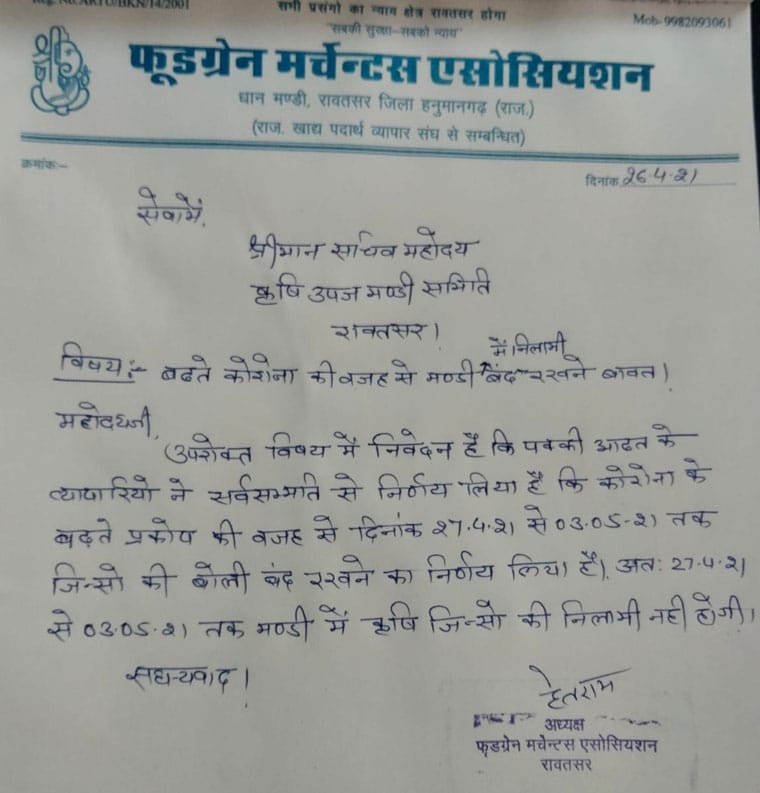 सभी प्रसंगो का न्याय क्षेत्र रावतसर होगा
"सबकी सुरक्षा–सबको न्याय"
Mob-9982093061
फूडग्रेन मर्चेन्टस एसोसियशन
धान मण्डी, रावतसर जिला हनुमानगढ़ (राज.)
(राज. खाद्य पदार्थ व्यापार संघ से सम्बन्धित)
क्रमांक:–
दिनांक 26.4.21
सेवामें,
श्रीमान सचिव महोदय
कृषि उपज मण्डी समिति
रावतसर।
विषय:- बढते कोरोना की वजह से मण्डी में निलामी बंद रखने बाबत।
महोदयजी,
उपरोक्त विषय में निवेदन है कि पक्की आढत के
व्यापारियो ने सर्वसम्मति से निर्णय लिया है कि कोरोना के
बढ़ते प्रकोप की वजह से दिनांक 27.4.21 से 03.05.21 तक
जिन्सो की बोली बंद रखने का निर्णय लिया है। अतः 27.4.21
से 03.05.21 तक मण्डी में कृषि जिन्सो की निलामी नही होगी।
सधन्यवाद।
हेतराम
अध्यक्ष
फूडग्रेन मर्चेन्टस एसोसियशन
रावतसर